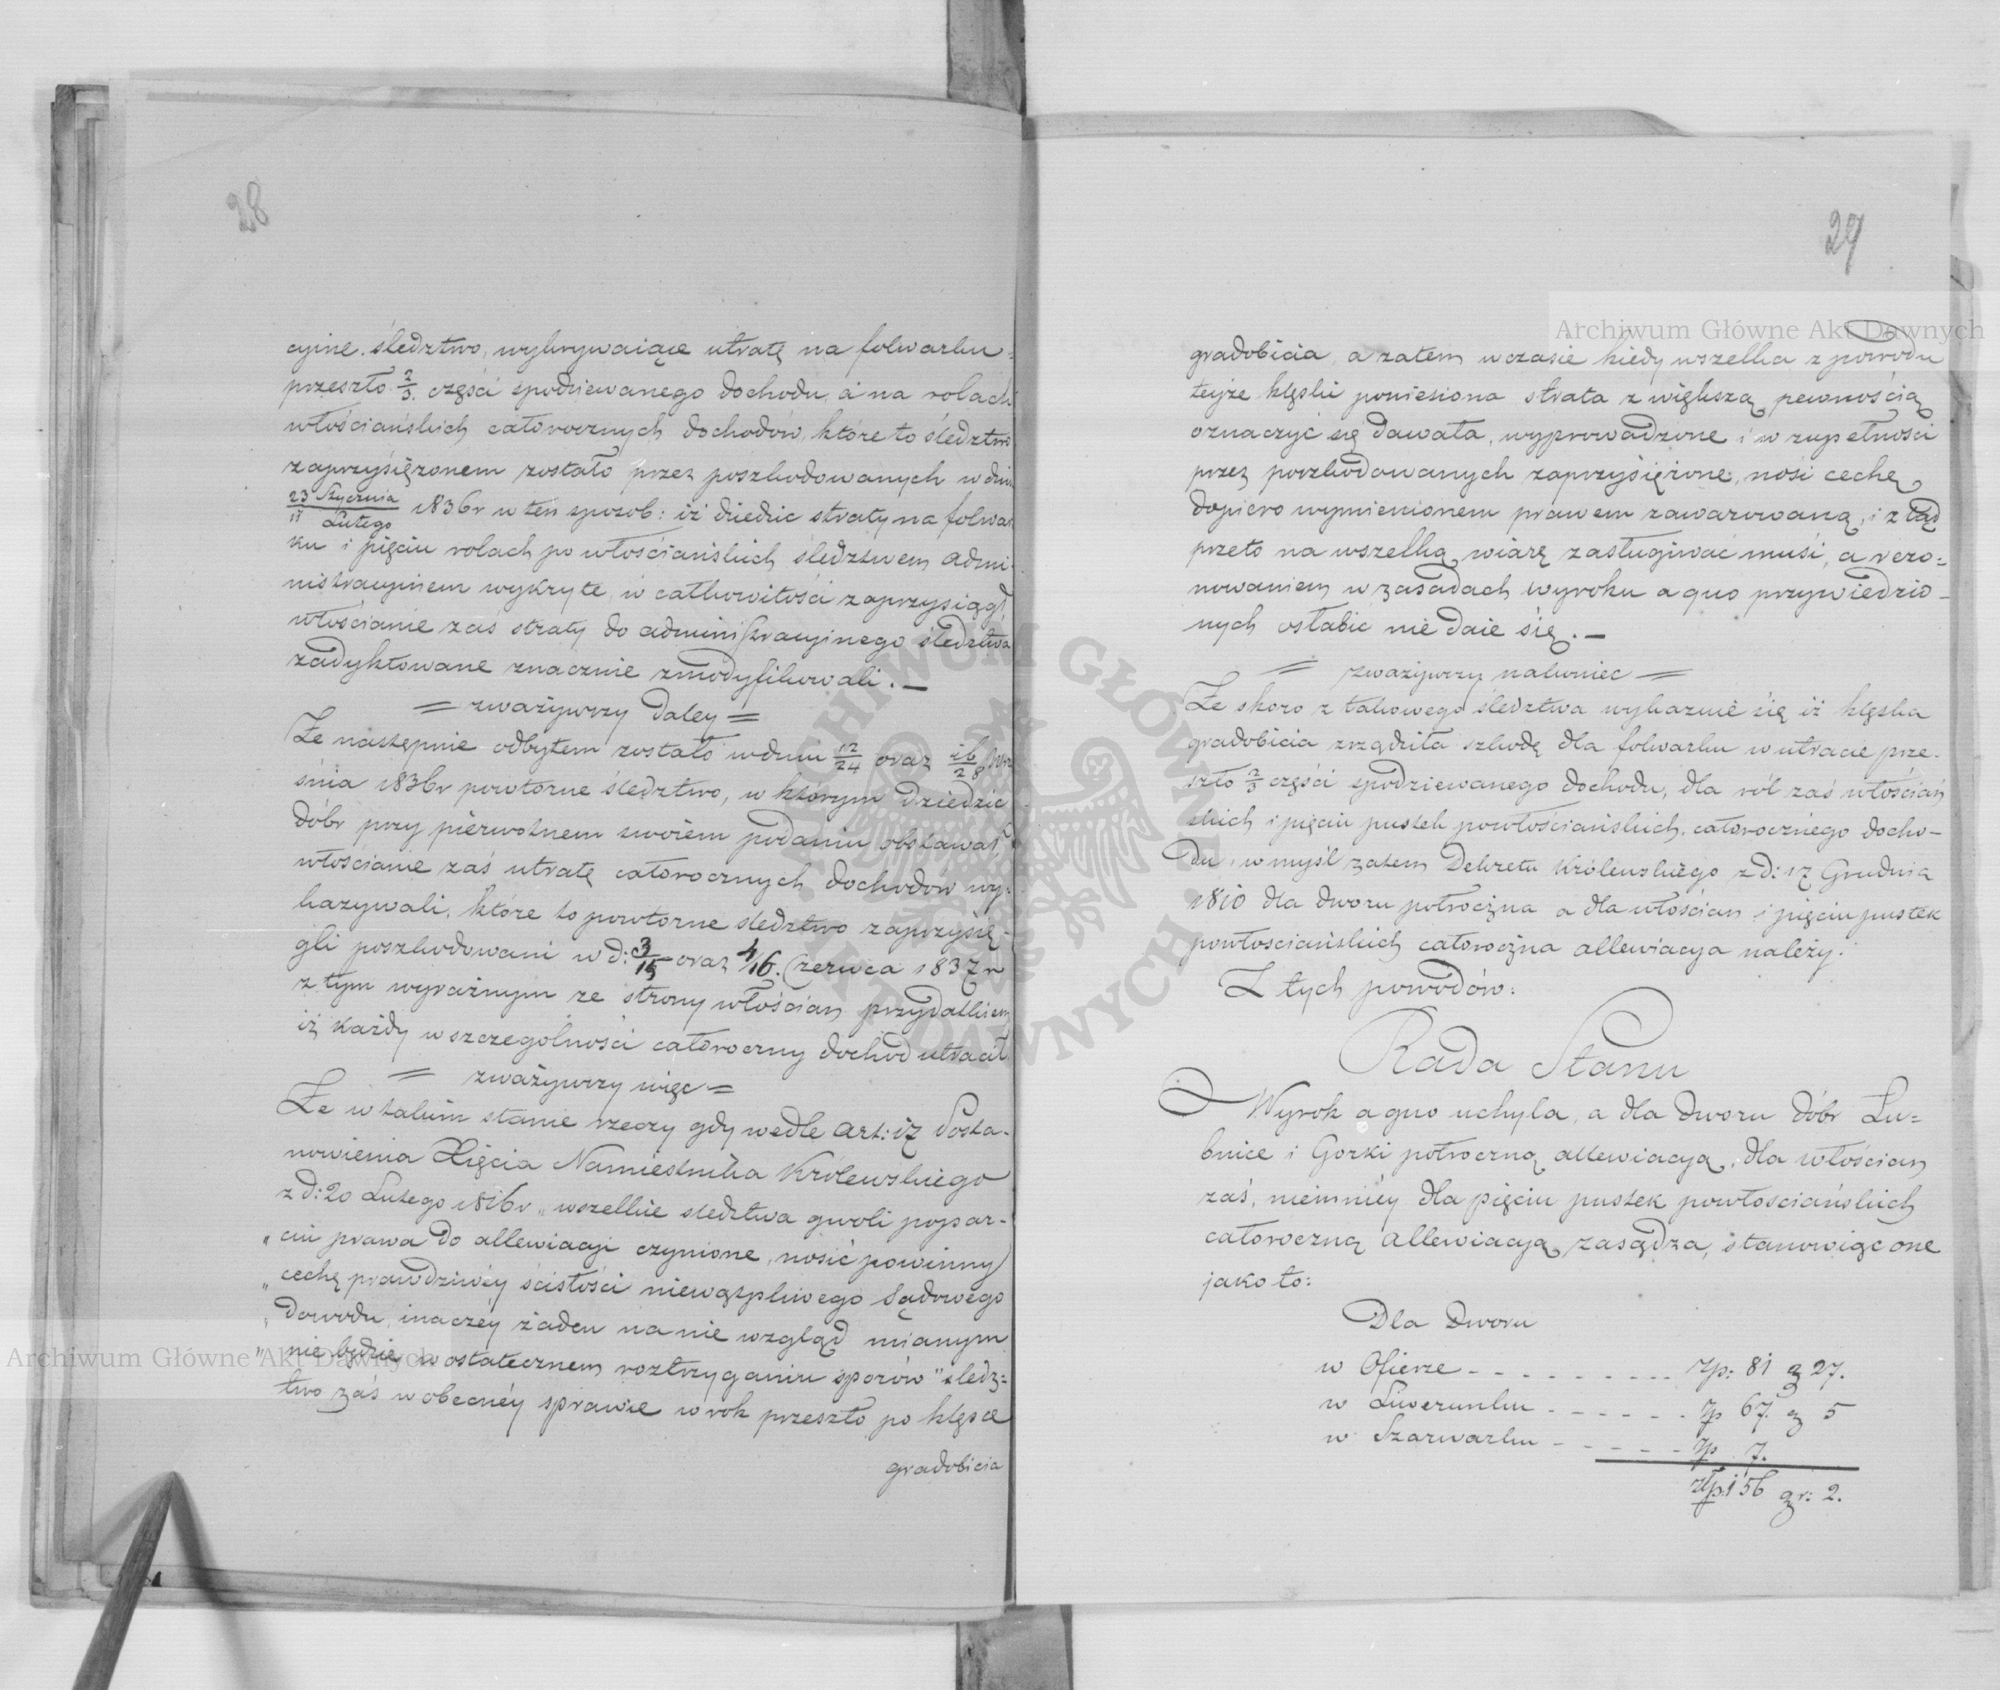 28
cyine śledztwo, wykrywaiące utratę na folwarku
przeszło 2/3 części spodziewanego dochodu, a na rolach
włościańskich całorocznych dochodów, które to śledztwo
zaprzysiężonem zostało przez poszkodowanych w dniu
23 Stycznia/11 Lutego 1836r w ten sposob: iż dziedzic straty na folwar
ku i pięciu rolach po włościańskich śledztwem admi-
nistracyinem wykryte, w całkowitości zaprzysiągł
włościanie zaś straty do administracyjnego śledztwa
zadyktowane znacznie zmodyfikowali. —
= zważywszy daley =
Że następnie odbytem zostało w dniu 12/24 oraz 16/28 Wrze
śnia 1836r powtorne śledztwo, w którym Dziedzic
dóbr przy pierwotnem swoiem podaniu obstawał
włościanie zaś utratę całorocznych dochodów wy-
kazywali, które to powtorne śledztwo zaprzysię-
gli poszkodowani w d: 3/15 oraz 4/16 Czerwca 1837 r
z tym wyraźnym ze strony włościan przydatkiem
iż każdy w szczególności całoroczny dochod utracił
= zważywszy więc =
Że w takim stanie rzeczy gdy wedle art: 17 Posta-
nowienia Xięcia Namiestnika Królewskiego
z d: 20 Lutego 1816r „wszelkie śledztwa gwoli popar-
„ciu prawa do allewiacji czynione, nosić powinny
„cechę prawdziwéy ścisłości niewątpliwego Sądowego
„dowodu, inaczéy żaden na nie wzgląd mianym
„nie będzie w ostatecznem roztrzyganiu sporów" śledz=
two zaś w obecnéy sprawie w rok przeszło po klęsce
gradobicia
29
gradobicia, a zatem w czasie kiedy wszelka z powodu
teyże klęski poniesiona strata z większą pewnością
oznaczyć się dawała, wyprowadzone i w zupełności
przez poszkodowanych zaprzysiężone, nosi cechę
dopiero wymienionem prawem zawarowaną, i z tąd
przeto na wszelką wiarę zasługiwać musi, a rezo=
nowaniem w zasadach wyroku a quo przywiedzio-
nych osłabić nie daie się. —
= zważywszy nakoniec =
Że skoro z takowego śledztwa wykazuie się iż klęska
gradobicia zrządziła szkodę dla folwarku w utracie prze-
szło 2/3 części spodziewanego dochodu, dla ról zaś włościań
skich i pięciu pustek powłościańskich, całorocznego docho-
du, w myśl zatem Dekretu Królewskiego z d: 17 Grudnia
1810 dla dworu półroczna a dla włościan i pięciu pustek
powłościańskich całoroczna allewiacya należy.
Z tych powodów:
Rada Stanu
Wyrok a quo uchyla, a dla dworu dóbr Łu=
bnice i Gorki półroczną allewiacyą, dla włościan
zaś, niemniéy dla pięciu pustek powłościańskich
całoroczną allewiacyą zasądza, stanowiąc one
jako to:
Dla Dworu
w Ofierze - - - - - - - - - Zp: 81 g 27.
w Liwerunku - - - - - - Zp 67. g 5
w Szarwarku - - - - - Zp 7.
Złp: 156 gr: 2.
Archiwum Główne Akt Dawnych
Archiwum Główne Akt Dawnych
ARCHIWUM GŁÓWNE AKT DAWNYCH